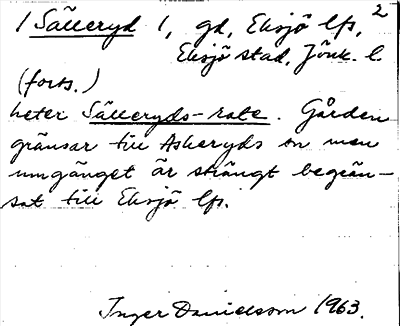 / Sälleryd /, gd, Eksjö lfs, 2
Eksjö stad, Jönk. l.
(forts.)
heter Sälleryds-rote. Gården
gränsar till Askeryds sn men
umgänget är strängt begrän-
sat till Eksjö lfs.
Inger Danielsson 1963.